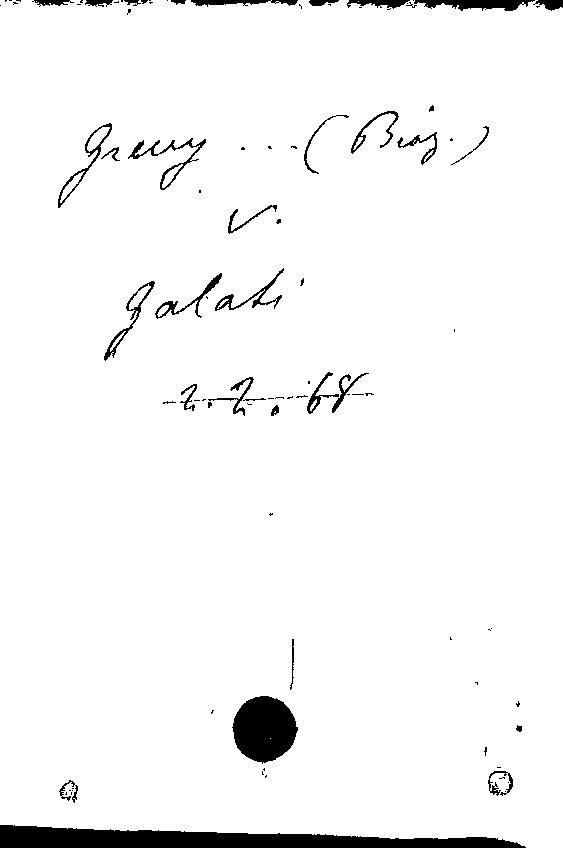 Grevy ... (Biog.)
v.
Galati
2.2.68